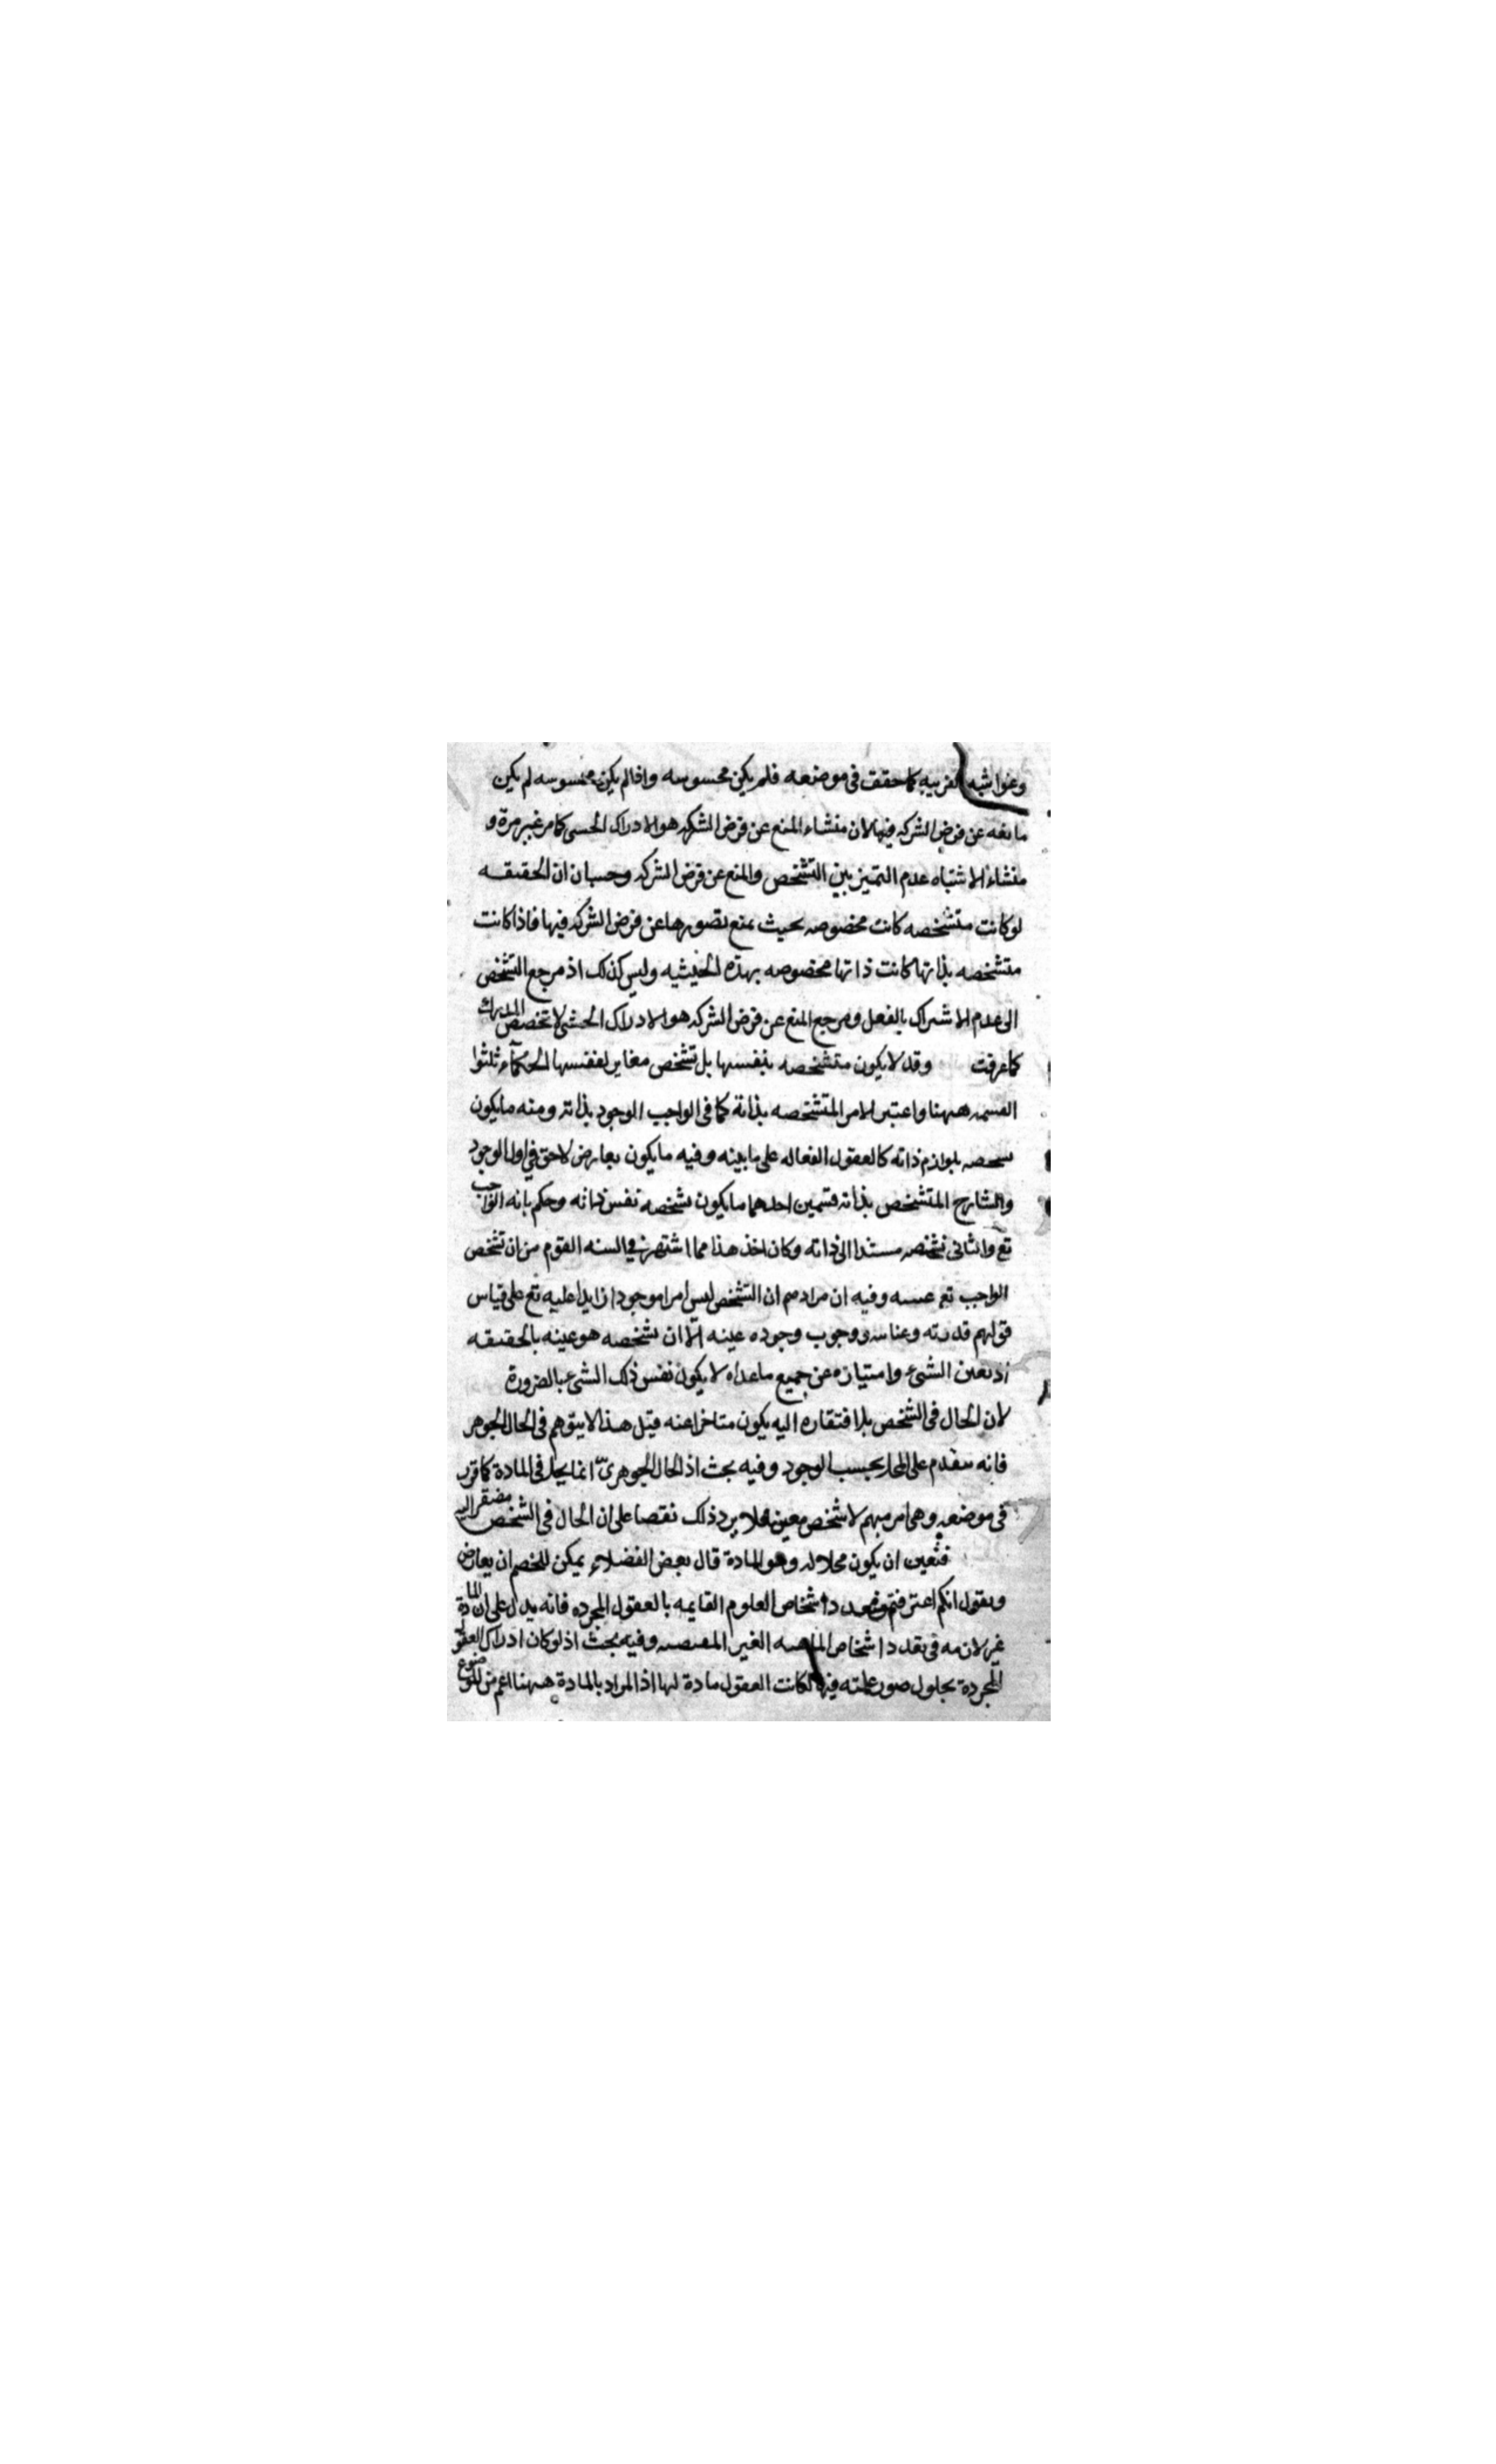 وغواشيه الغريبه كما حقق فى موضعه فلم يكن محسوسه واذا لم يكن محسوسه لم يكن
مانعه عن فرض الشركه فيها لان منشاء المنع عن فرض الشركه هو الادراك الحسى كما مر غير مرة و
منشاء الاشتباه عدم التميز بين التشخص والمنع عن فرض الشركه وحسبان ان الحقيقه
لو كانت متشخصه كانت مخصوصه بحيث يمنع تصورها عن فرض الشركه فيها فاذا كانت
متشخصه بذاتها كانت ذاتها مخصوصه بهذه الحيثيه وليس كذلك اذ مرجع التشخص
الى عدم الاشتراك بالفعل ومرجع المنع عن فرض الشركه هو الادراك الحسى لا تخصص المدرك
كما عرفت وقد لا يكون متشخصه بنفسها بل تشخص مغاير لنفسها الحكماء ثلثوا
القسمه ههنا واعتبر الامر المتشخصه بذاته كما فى الواجب الوجود بذاته ومنه ما يكون
تشخصه بلوازم ذاته كالعقول الفعاله على ما بينه وفيه ما يكون بعارض لاحق فى اول الوجود
والشارح المتشخص بذاته قسمين احدهما ما يكون تشخصه نفس ذاته وحكم بانه الواجب
تع والثانى تشخصه مستندا الى ذاته وكان اخذ هذا مما اشتهر فى السنه القوم من ان تشخص
الواجب تع عينه وفيه ان مرادهم ان التشخص ليس امرا موجودا زايدا عليه تع على قياس
قولهم قدرته وعنايته ووجوب وجوده عينه الا ان تشخصه هو عينه بالحقيقه
اذ تعين الشئ وامتيازه عن جميع ماعداه لا يكون نفس ذلك الشئ بالضرورة
لان الحال فى الشخص بلا افتقاره اليه يكون متاخرا عنه قيل هذا لا يتوهم فى الحال الجوهر
فانه متقدم على المحل بحسب الوجود وفيه بحث اذ الحال الجوهرى انما يحل فى المادة كما قرر
فى موضعه وهى امر مبهم لا شخص معين فلا يرد ذلك نقصا على ان الحال فى الشخص مفتقر اليه
فتعين ان يكون محلا له وهو المادة قال بعض الفضلاء يمكن للخصم ان يعارض
ويقول انكم اعترفتم بتعدد اشخاص العلوم القايمه بالعقول المجرده فانه يدل على ان المادة
غير لازمه فى تعدد اشخاص الماهيه الغير وفيه بحث اذ لو كان ادراك العقول
المجردة بحلول صور علميه فيها لكانت العقول مادة لها اذ المراد بالمادة ههنا اعم من الموضوع